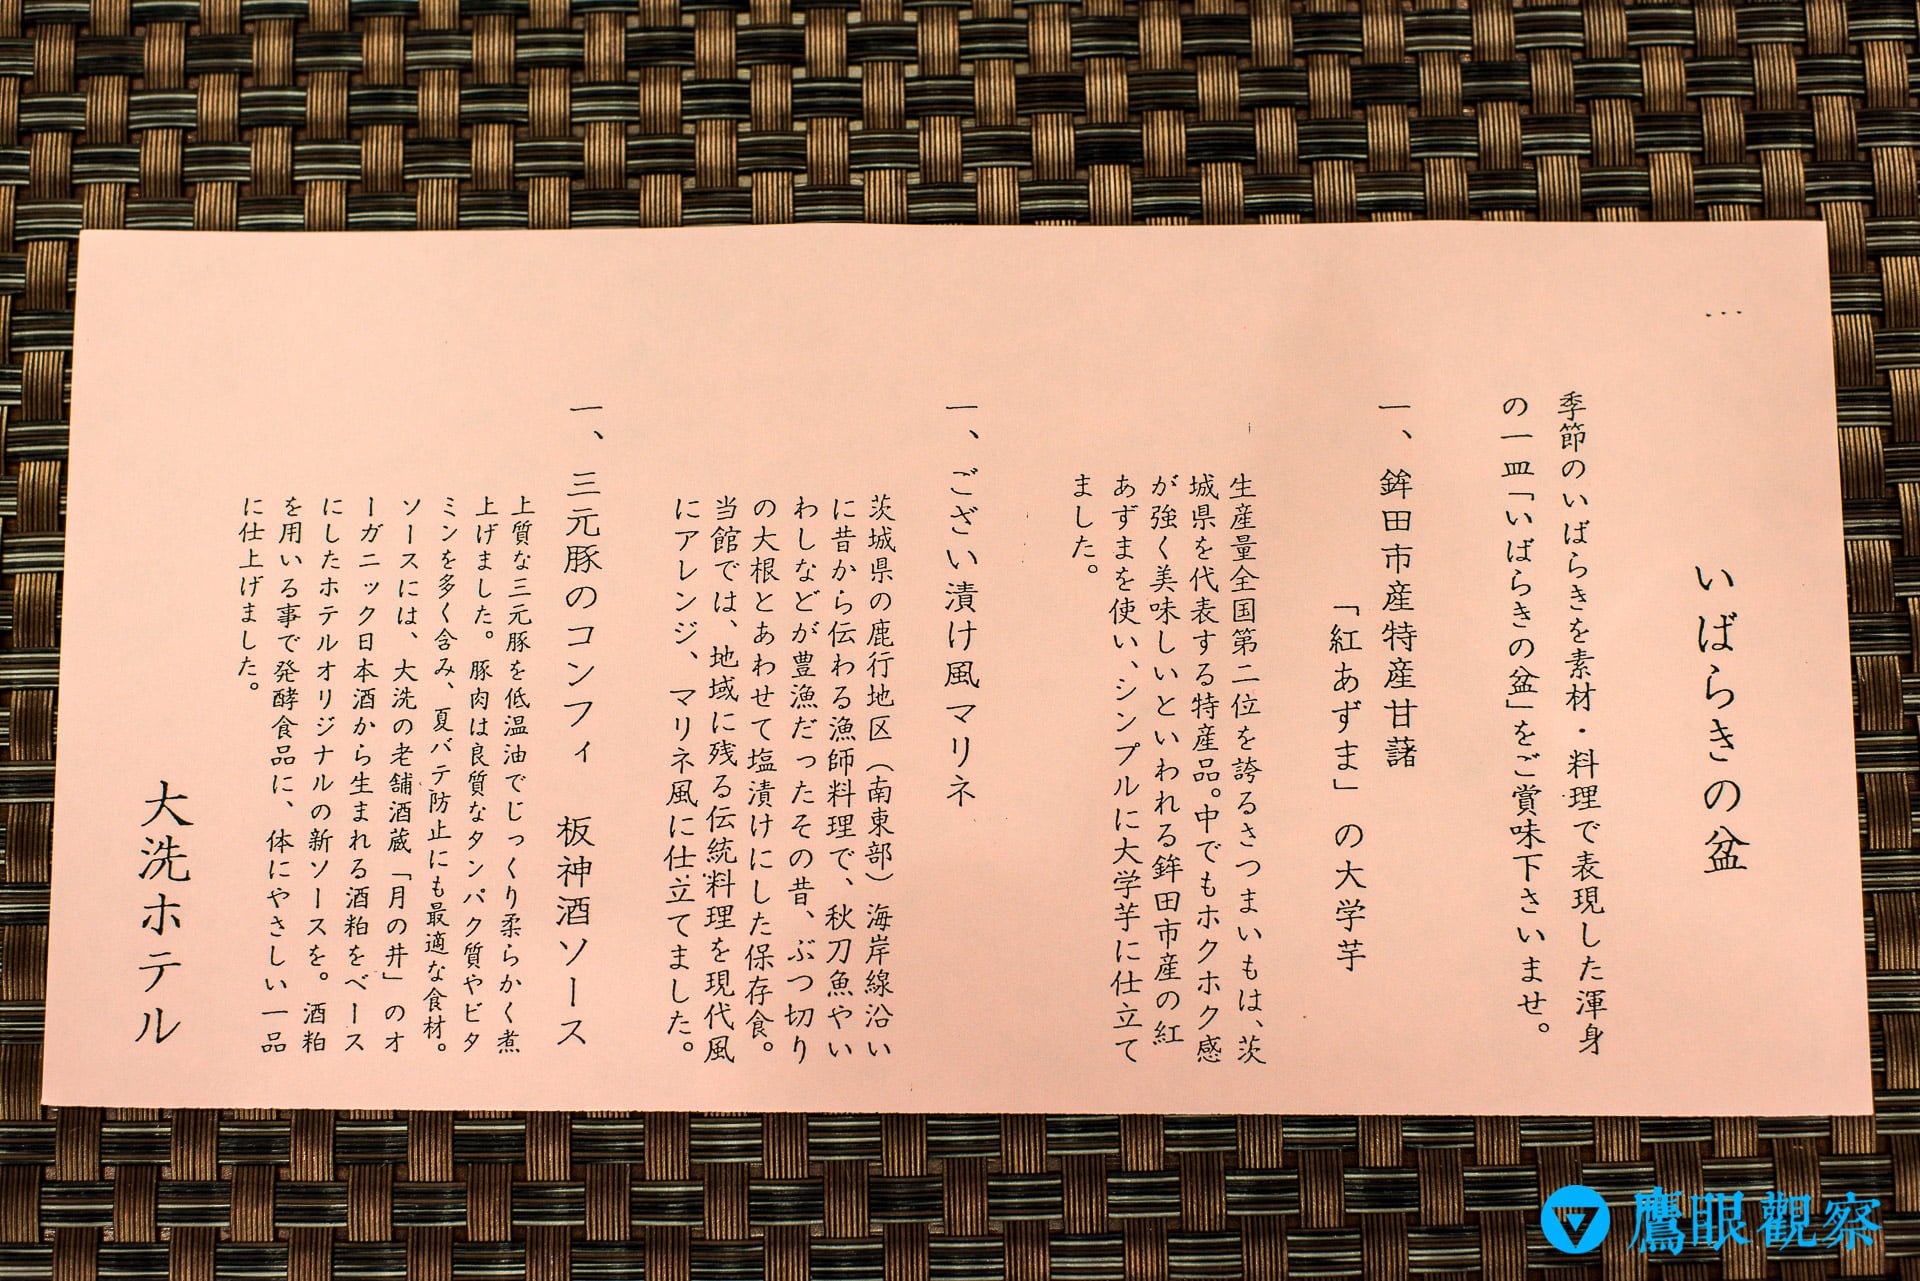 いばらきの盆
季節のいばらきを素材・料理で表現した渾身
の一皿「いばらきの盆」をご賞味下さいませ。
一、鉾田市産特産甘藷
「紅あずま」の大学芋
生産量全国第二位を誇るさつまいもは、茨
城県を代表する特産品。中でもホクホク感
が強く美味しいといわれる鉾田市産の紅
あずまを使い、シンプルに大学芋に仕立て
ました。
一、ござい漬け風マリネ
茨城県の鹿行地区（南東部）海岸線沿い
に昔から伝わる漁師料理で、秋刀魚やい
わしなどが豊漁だったその昔、ぶつ切り
の大根とあわせて塩漬けにした保存食。
当館では、地域に残る伝統料理を現代風
にアレンジ、マリネ風に仕立てました。
一、三元豚のコンフィ　板神酒ソース
上質な三元豚を低温油でじっくり柔らかく煮
上げました。豚肉は良質なタンパク質やビタ
ミンを多く含み、夏バテ防止にも最適な食材。
ソースには、大洗の老舗酒蔵「月の井」のオ
ーガニック日本酒から生まれる酒粕をベース
にしたホテルオリジナルの新ソースを。酒粕
を用いる事で発酵食品に、体にやさしい一品
に仕上げました。
大洗ホテル
鷹眼觀察